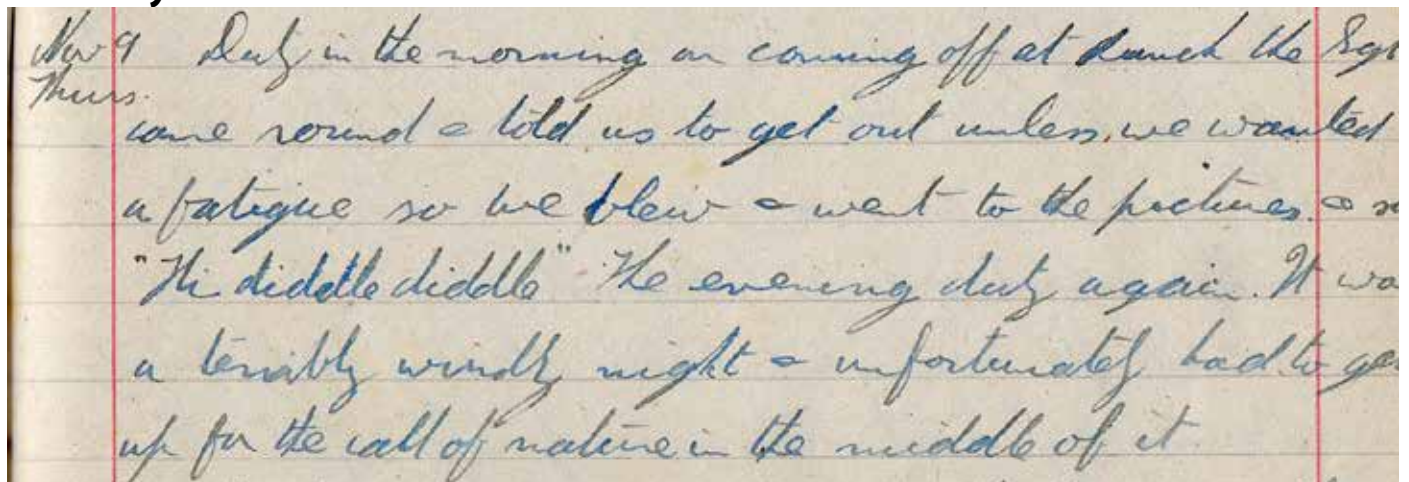 Nov 9 Duty in the morning on coming off at lunch the Sgt
Thurs.
came round & told us to get out unless we wanted
a fatigue so we blew & went to the pictures. &
"Hi diddle diddle" The evening duty again. It wa
a terribly windy night & unfortunately had to ge
up for the call of nature in the middle of it.